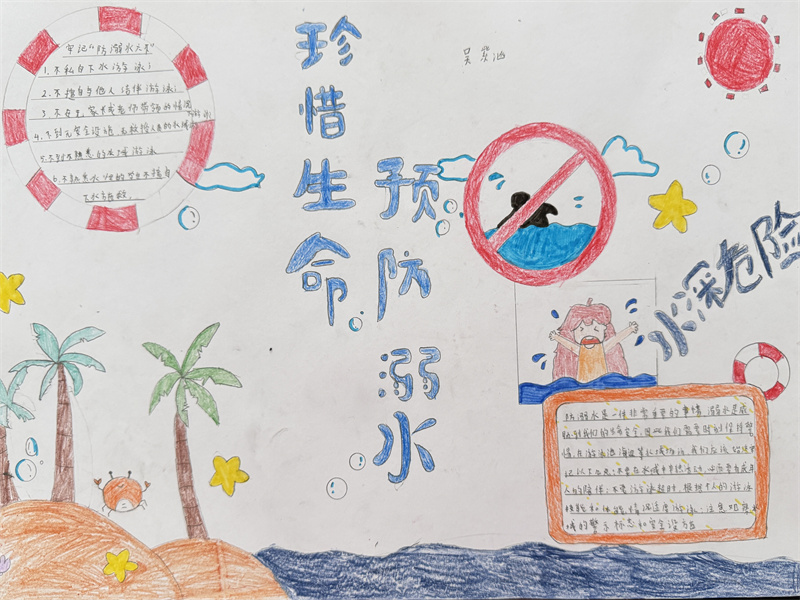 牢记“防溺水六不”
1.不私自下水游泳；
2.不擅自与他人结伴游泳；
3.不在无家长或老师带领的情况
下游泳；
4.不到无安全设施、无救援人员的水域
5.不到不熟悉的水域游泳
6.不熟悉水性的学生不擅自
下水施救.
珍惜生命
预防溺水
水深危险
防溺水是一件非常重要的事情，溺水是威
胁到我们的生命安全，因此我们需要时刻保持警
惕，在游泳池海边等水域场所，我们应该
记以下几点：不要在水域中
人的陪伴；不要游泳超时，根据个人的游泳
技能和体能情况适度游泳；注意观察水
域的警示标志和安全设施